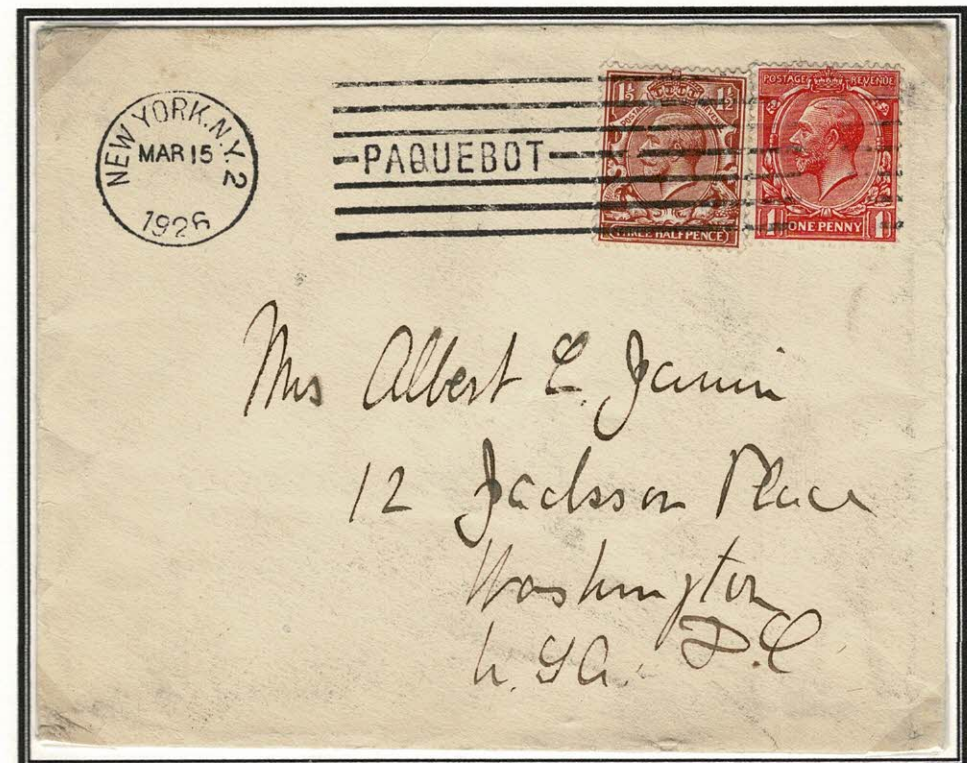 NEW YORK, N.Y. 2
MAR 15
1926
PAQUEBOT
1½ 1½
POSTAGE REVENUE
THREE HALFPENCE
POSTAGE REVENUE
1 ONE PENNY 1
Mrs Albert E. Janin
12 Jackson Place
Washington
D.C.
U.S.A.